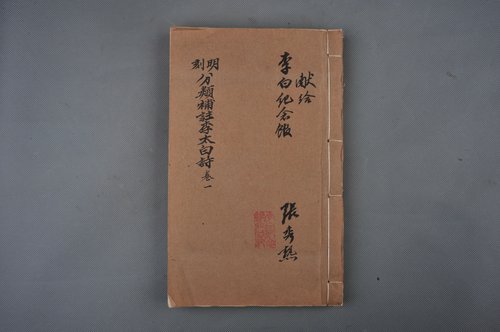 献给
李白纪念館
張秀熟
明刻
分類補註李太白詩 卷一